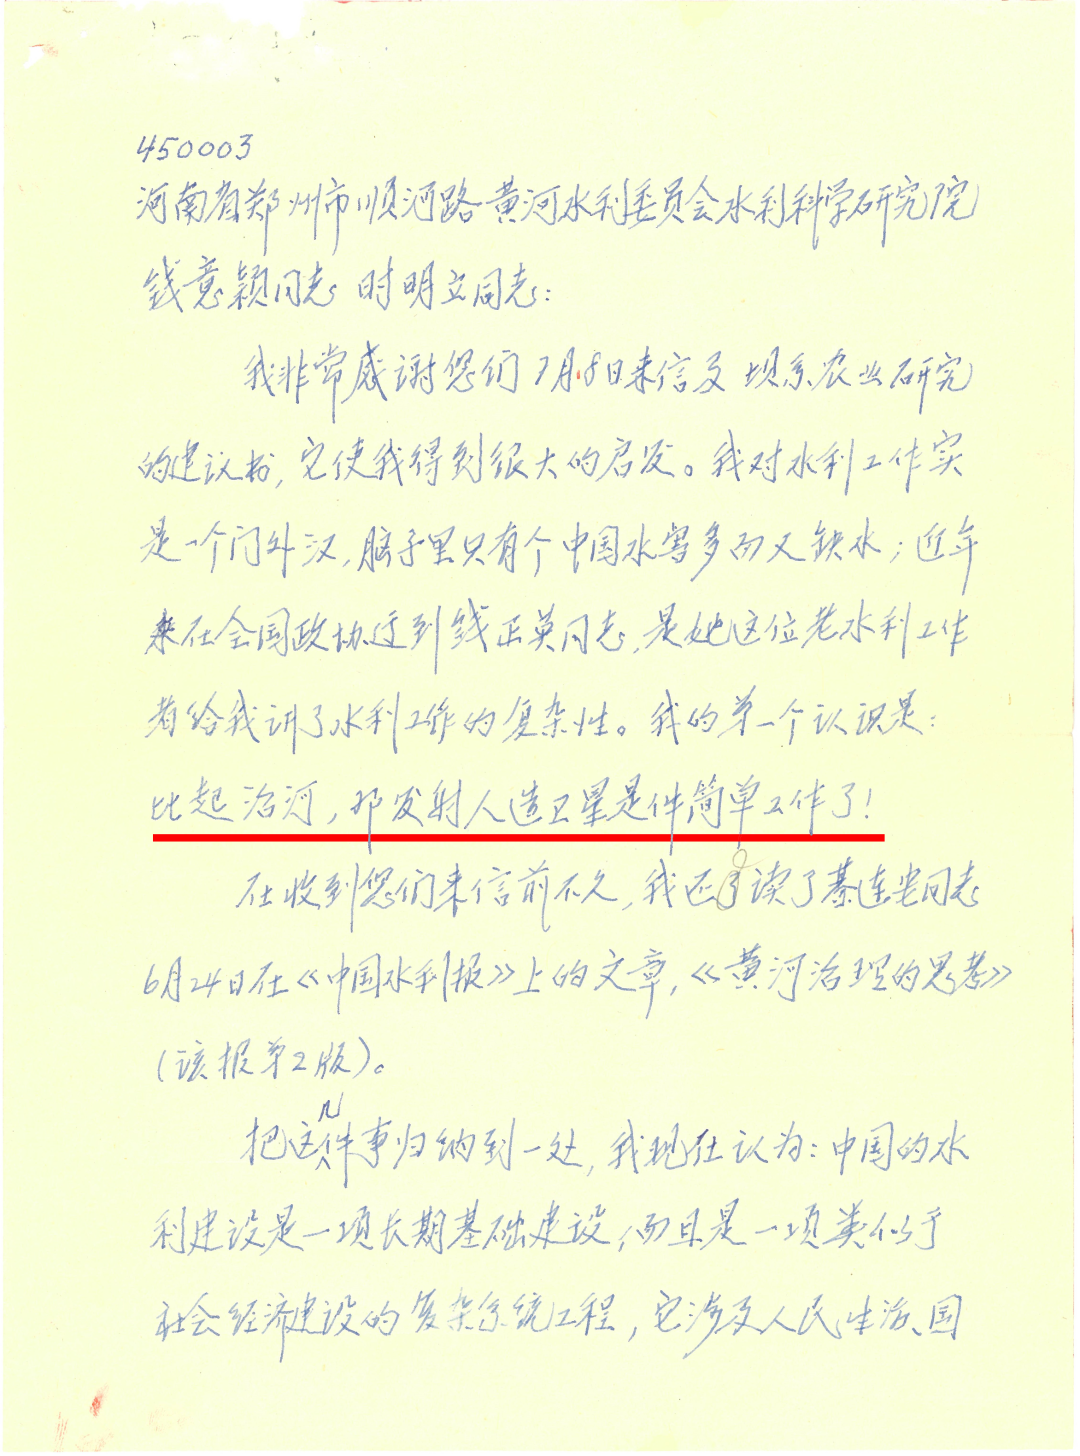 450003
河南省郑州市顺河路黄河水利委员会水利科学研究院
钱意颖同志 时明立同志：
我非常感谢您们7月8日来信及坝系农业研究
的建议书，它使我得到很大的启发。我对水利工作实
是一个门外汉，脑子里只有个中国水害多而又缺水；近年
来在全国政协迂到钱正英同志，是她这位老水利工作
者给我讲了水利工作的复杂性。我的第一个认识是：
比起治河，那发射人造卫星是件简单工作了！
在收到您们来信前不久，我还读了綦连安同志
6月24日在《中国水利报》上的文章，《黄河治理的思考》
（该报第2版）。
把这几件事归纳到一处，我现在认为：中国的水
利建设是一项长期基础建设，而且是一项类似于
社会经济建设的复杂系统工程，它涉及人民生活、国